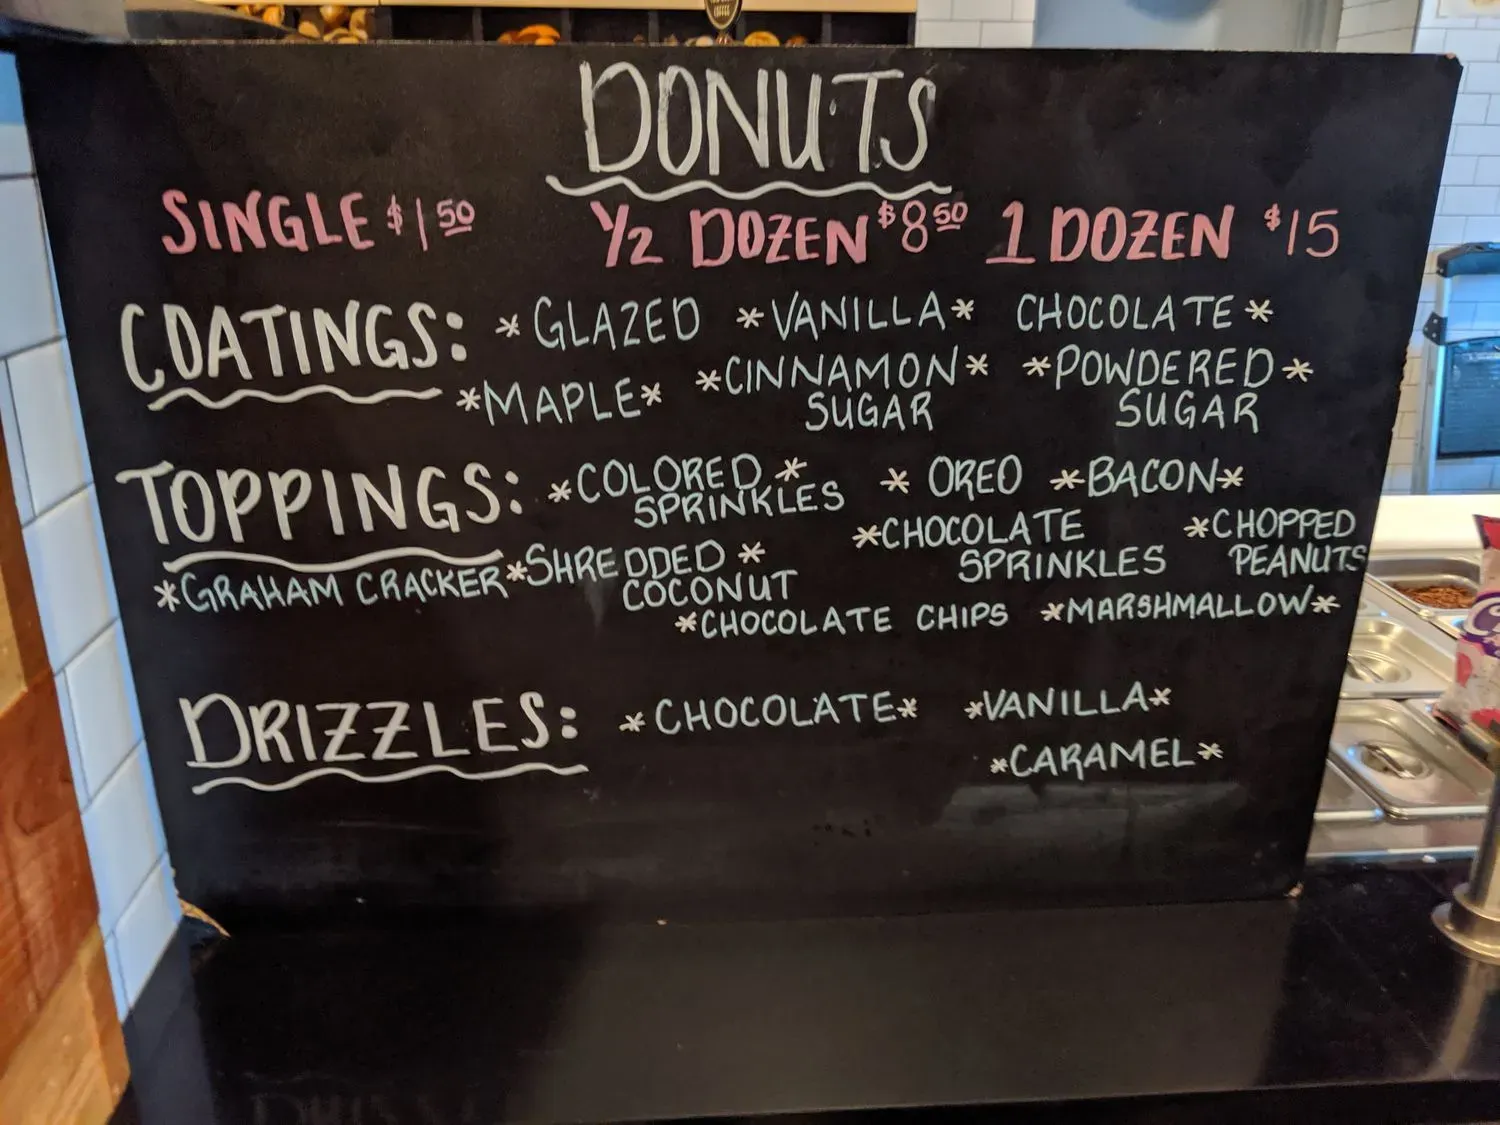 DONUTS
SINGLE $1.50 1/2 DOZEN $8.50 1 DOZEN $15
COATINGS: *GLAZED *VANILLA* CHOCOLATE*
*MAPLE* *CINNAMON SUGAR* *POWDERED SUGAR*
TOPPINGS: *COLORED SPRINKLES* * OREO *BACON*
*CHOCOLATE SPRINKLES *CHOPPED PEANUTS
*GRAHAM CRACKER *SHREDDED COCONUT*
*CHOCOLATE CHIPS *MARSHMALLOW*
DRIZZLES: *CHOCOLATE* *VANILLA*
*CARAMEL*